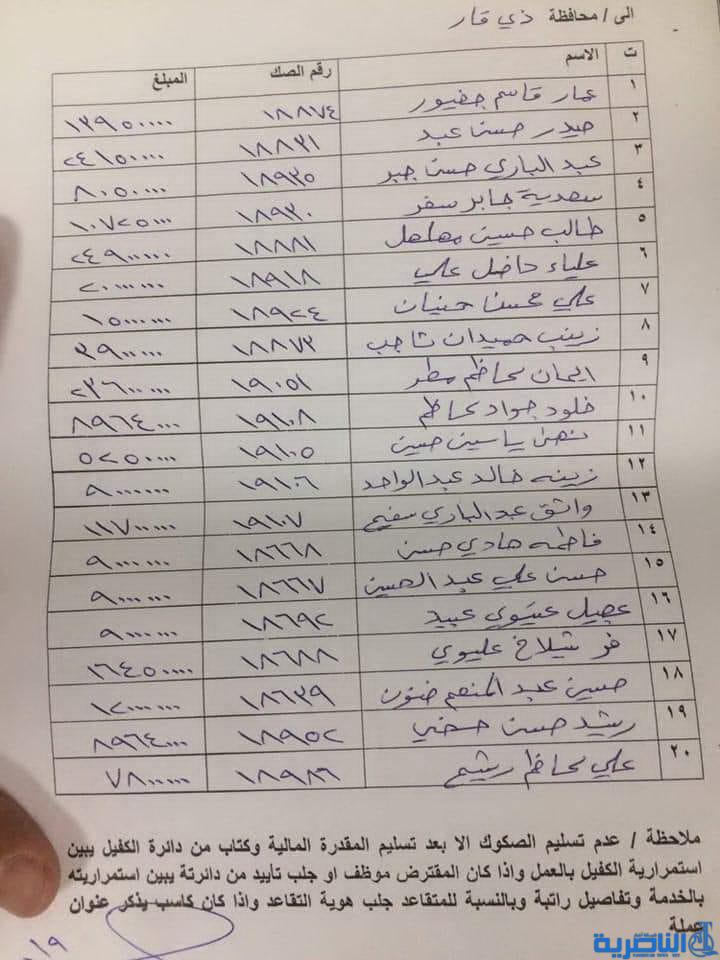 الى / محافظة ذي قار
ت الاسم رقم الصك المبلغ
١ عمار قاسم جفيور ١٨٨٧٤ ١٣٩٥٠٠٠٠
٢ حيدر حسن عبد ١٨٨٣١ ٢٤١٥٠٠٠٠
٣ عبد الباري حسن جبر ١٨٩٣٥ ٨٠٥٠٠٠٠
٤ سعدية جابر سفر ١٨٩٣٠ ١٠٧٢٥٠٠٠
٥ طالب حسين مهلهل ١٨٨٨١ ٢٤٩٠٠٠٠٠
٦ علياء فاضل علي ١٨٩١٨ ٢٠٠٠٠٠٠٠
٧ علي محسن حنيان ١٨٩٢٤ ١٥٠٠٠٠٠٠
٨ زينب حميدان ١٨٨٧٣ ٣٩٠٠٠٠٠
٩ ايمان كاظم مطر ١٩٠٥١ ٢٣٦٠٠٠٠٠
١٠ خلود جواد كاظم ١٩١٠٨ ٨٩٦٤٠٠٠
١١ نهى ياسين حسين ١٩١٠٥ ٥٢٥٠٠٠٠
١٢ زينه خالد عبد الواحد ١٩١٠٦ ٩٠٠٠٠٠٠
١٣ واثق عبد الباري سفيح ١٩١٠٧ ١١٧٠٠٠٠٠
١٤ فاطمه هادي حسن ١٨٦٦٨ ٩٠٠٠٠٠٠
١٥ حسن علي عبد الحسن ١٨٦٦٧ ٩٠٠٠٠٠٠
١٦ عجيل عبيد ١٨٦٩٢ ٩٠٠٠٠٠٠
١٧ شلاخ عليوي ١٨٦٨٨ ١٦٤٥٠٠٠٠
١٨ حسين عبد المنعم ١٨٦٣٩ ١٢٠٠٠٠٠٠
١٩ رشيد حسن ١٨٩٥٢ ٨٩٦٤٠٠٠
٢٠ علي كاظم ١٨٩٨٦ ٧٨٠٠٠٠٠
ملاحظة / عدم تسليم الصكوك الا بعد تسليم المقدرة المالية وكتاب من دائرة الكفيل يبين
استمرارية الكفيل بالعمل واذا كان المقترض موظف او جلب تأييد من دائرتة يبين استمراريته
بالخدمة وتفاصيل راتبة وبالنسبة للمتقاعد جلب هوية التقاعد واذا كان كاسب يذكر عنوان
عملة
شبكة أخبار الناصرية